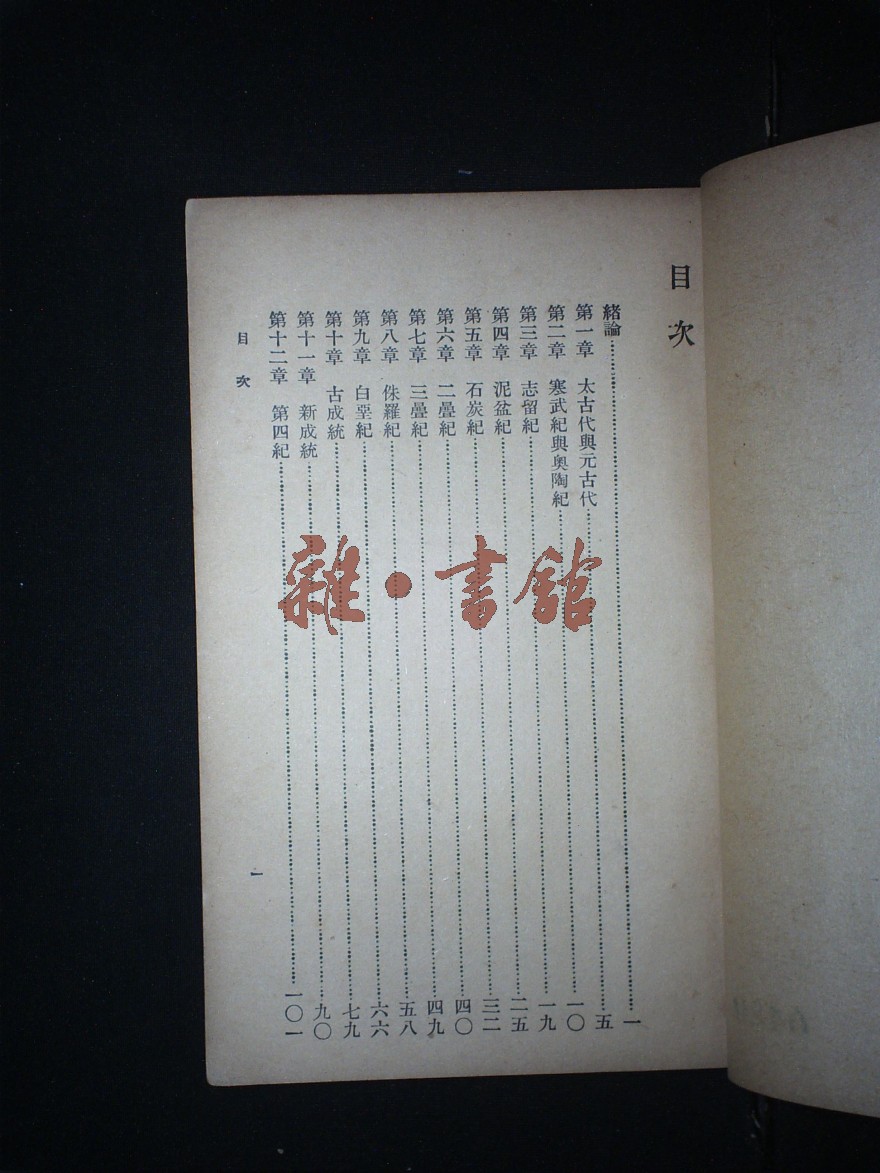 目次
緒論……一
第一章 太古代與元古代……五
第二章 寒武紀與奧陶紀……一〇
第三章 志留紀……一九
第四章 泥盆紀……二五
第五章 石炭紀……三二
第六章 二疊紀……四〇
第七章 三疊紀……四九
第八章 侏羅紀……五八
第九章 白堊紀……六六
第十章 古成統……七九
第十一章 新成統……九〇
第十二章 第四紀……一〇一
目次
一
雜·書館